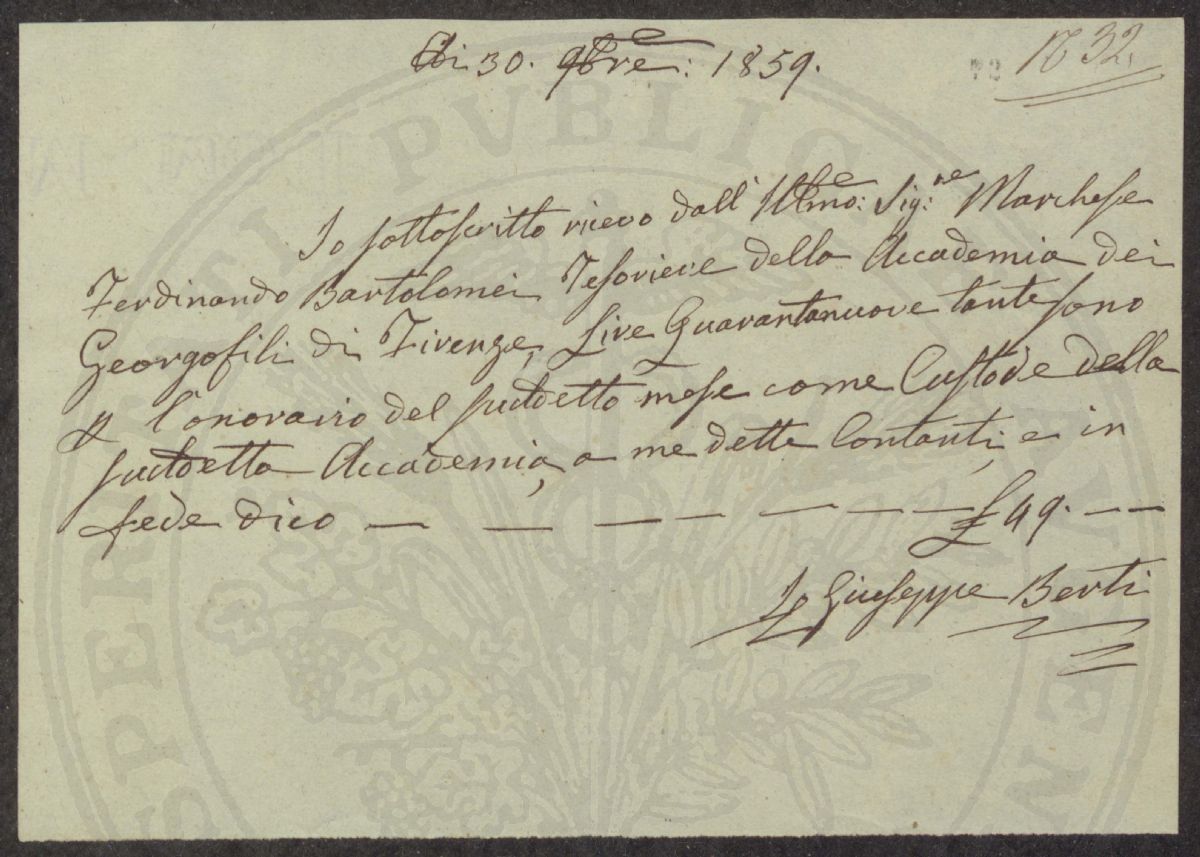 Adi 30. 9bre: 1859.
N 32,
Io sottoscritto ricevo dall' Illmo: Sig:re Marchese
Ferdinando Bartolomei Tesoriere della Accademia dei
Georgofili di Firenze, Lire Quarantanuove tante sono
p l'onorario del suddetto mese come Custode della
suddetta Accademia, a me dette Contanti, e in
fede dico — — — — — — — £ 49. — —
Io Giuseppe Berti
PROSPERITATI PUBLICAE AUGENDAE